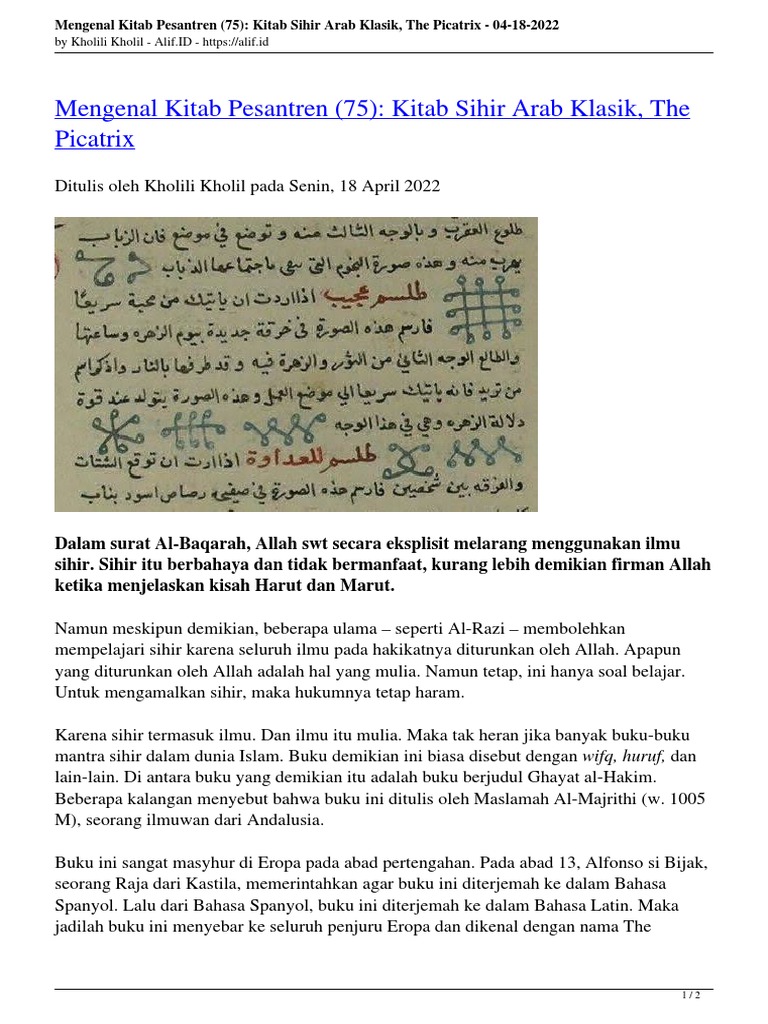 Mengenal Kitab Pesantren (75): Kitab Sihir Arab Klasik, The Picatrix - 04-18-2022
by Kholili Kholil - Alif.ID - https://alif.id
Mengenal Kitab Pesantren (75): Kitab Sihir Arab Klasik, The
Picatrix
Ditulis oleh Kholili Kholil pada Senin, 18 April 2022
طلوع العقرب و بالوجه الثالث منه و توضع في موضع فان الذباب
يهرب منه و هذه صورة النجوم التي سمي باجتماعها الذباب
طلسم عجيب اذا اردت ان ياتيك من محبة سريعا
فارسم هذه الصورة في خرقة جديدة بيوم الزهره وساعتها
والطالع الوجه الثاني من الثور والزهرة فيه و قد طرفها بالنار واذكر اسم
من تريد فانه ياتيك سريعا الي موضع العمل وهذه الصورة يتولد عند قوة
دلالة الزهره وهي في هذا الوجه
طلسم للعداوة اذا اردت ان توقع الشتات
والفرقه بين شخصين فارسم هذه الصورة في رصاص اسود بناب
Dalam surat Al-Baqarah, Allah swt secara eksplisit melarang menggunakan ilmu
sihir. Sihir itu berbahaya dan tidak bermanfaat, kurang lebih demikian firman Allah
ketika menjelaskan kisah Harut dan Marut.
Namun meskipun demikian, beberapa ulama – seperti Al-Razi – membolehkan
mempelajari sihir karena seluruh ilmu pada hakikatnya diturunkan oleh Allah. Apapun
yang diturunkan oleh Allah adalah hal yang mulia. Namun tetap, ini hanya soal belajar.
Untuk mengamalkan sihir, maka hukumnya tetap haram.
Karena sihir termasuk ilmu. Dan ilmu itu mulia. Maka tak heran jika banyak buku-buku
mantra sihir dalam dunia Islam. Buku demikian ini biasa disebut dengan wifq, huruf, dan
lain-lain. Di antara buku yang demikian itu adalah buku berjudul Ghayat al-Hakim.
Beberapa kalangan menyebut bahwa buku ini ditulis oleh Maslamah Al-Majrithi (w. 1005
M), seorang ilmuwan dari Andalusia.
Buku ini sangat masyhur di Eropa pada abad pertengahan. Pada abad 13, Alfonso si Bijak,
seorang Raja dari Kastila, memerintahkan agar buku ini diterjemah ke dalam Bahasa
Spanyol. Lalu dari Bahasa Spanyol, buku ini diterjemah ke dalam Bahasa Latin. Maka
jadilah buku ini menyebar ke seluruh penjuru Eropa dan dikenal dengan nama The
1 / 2